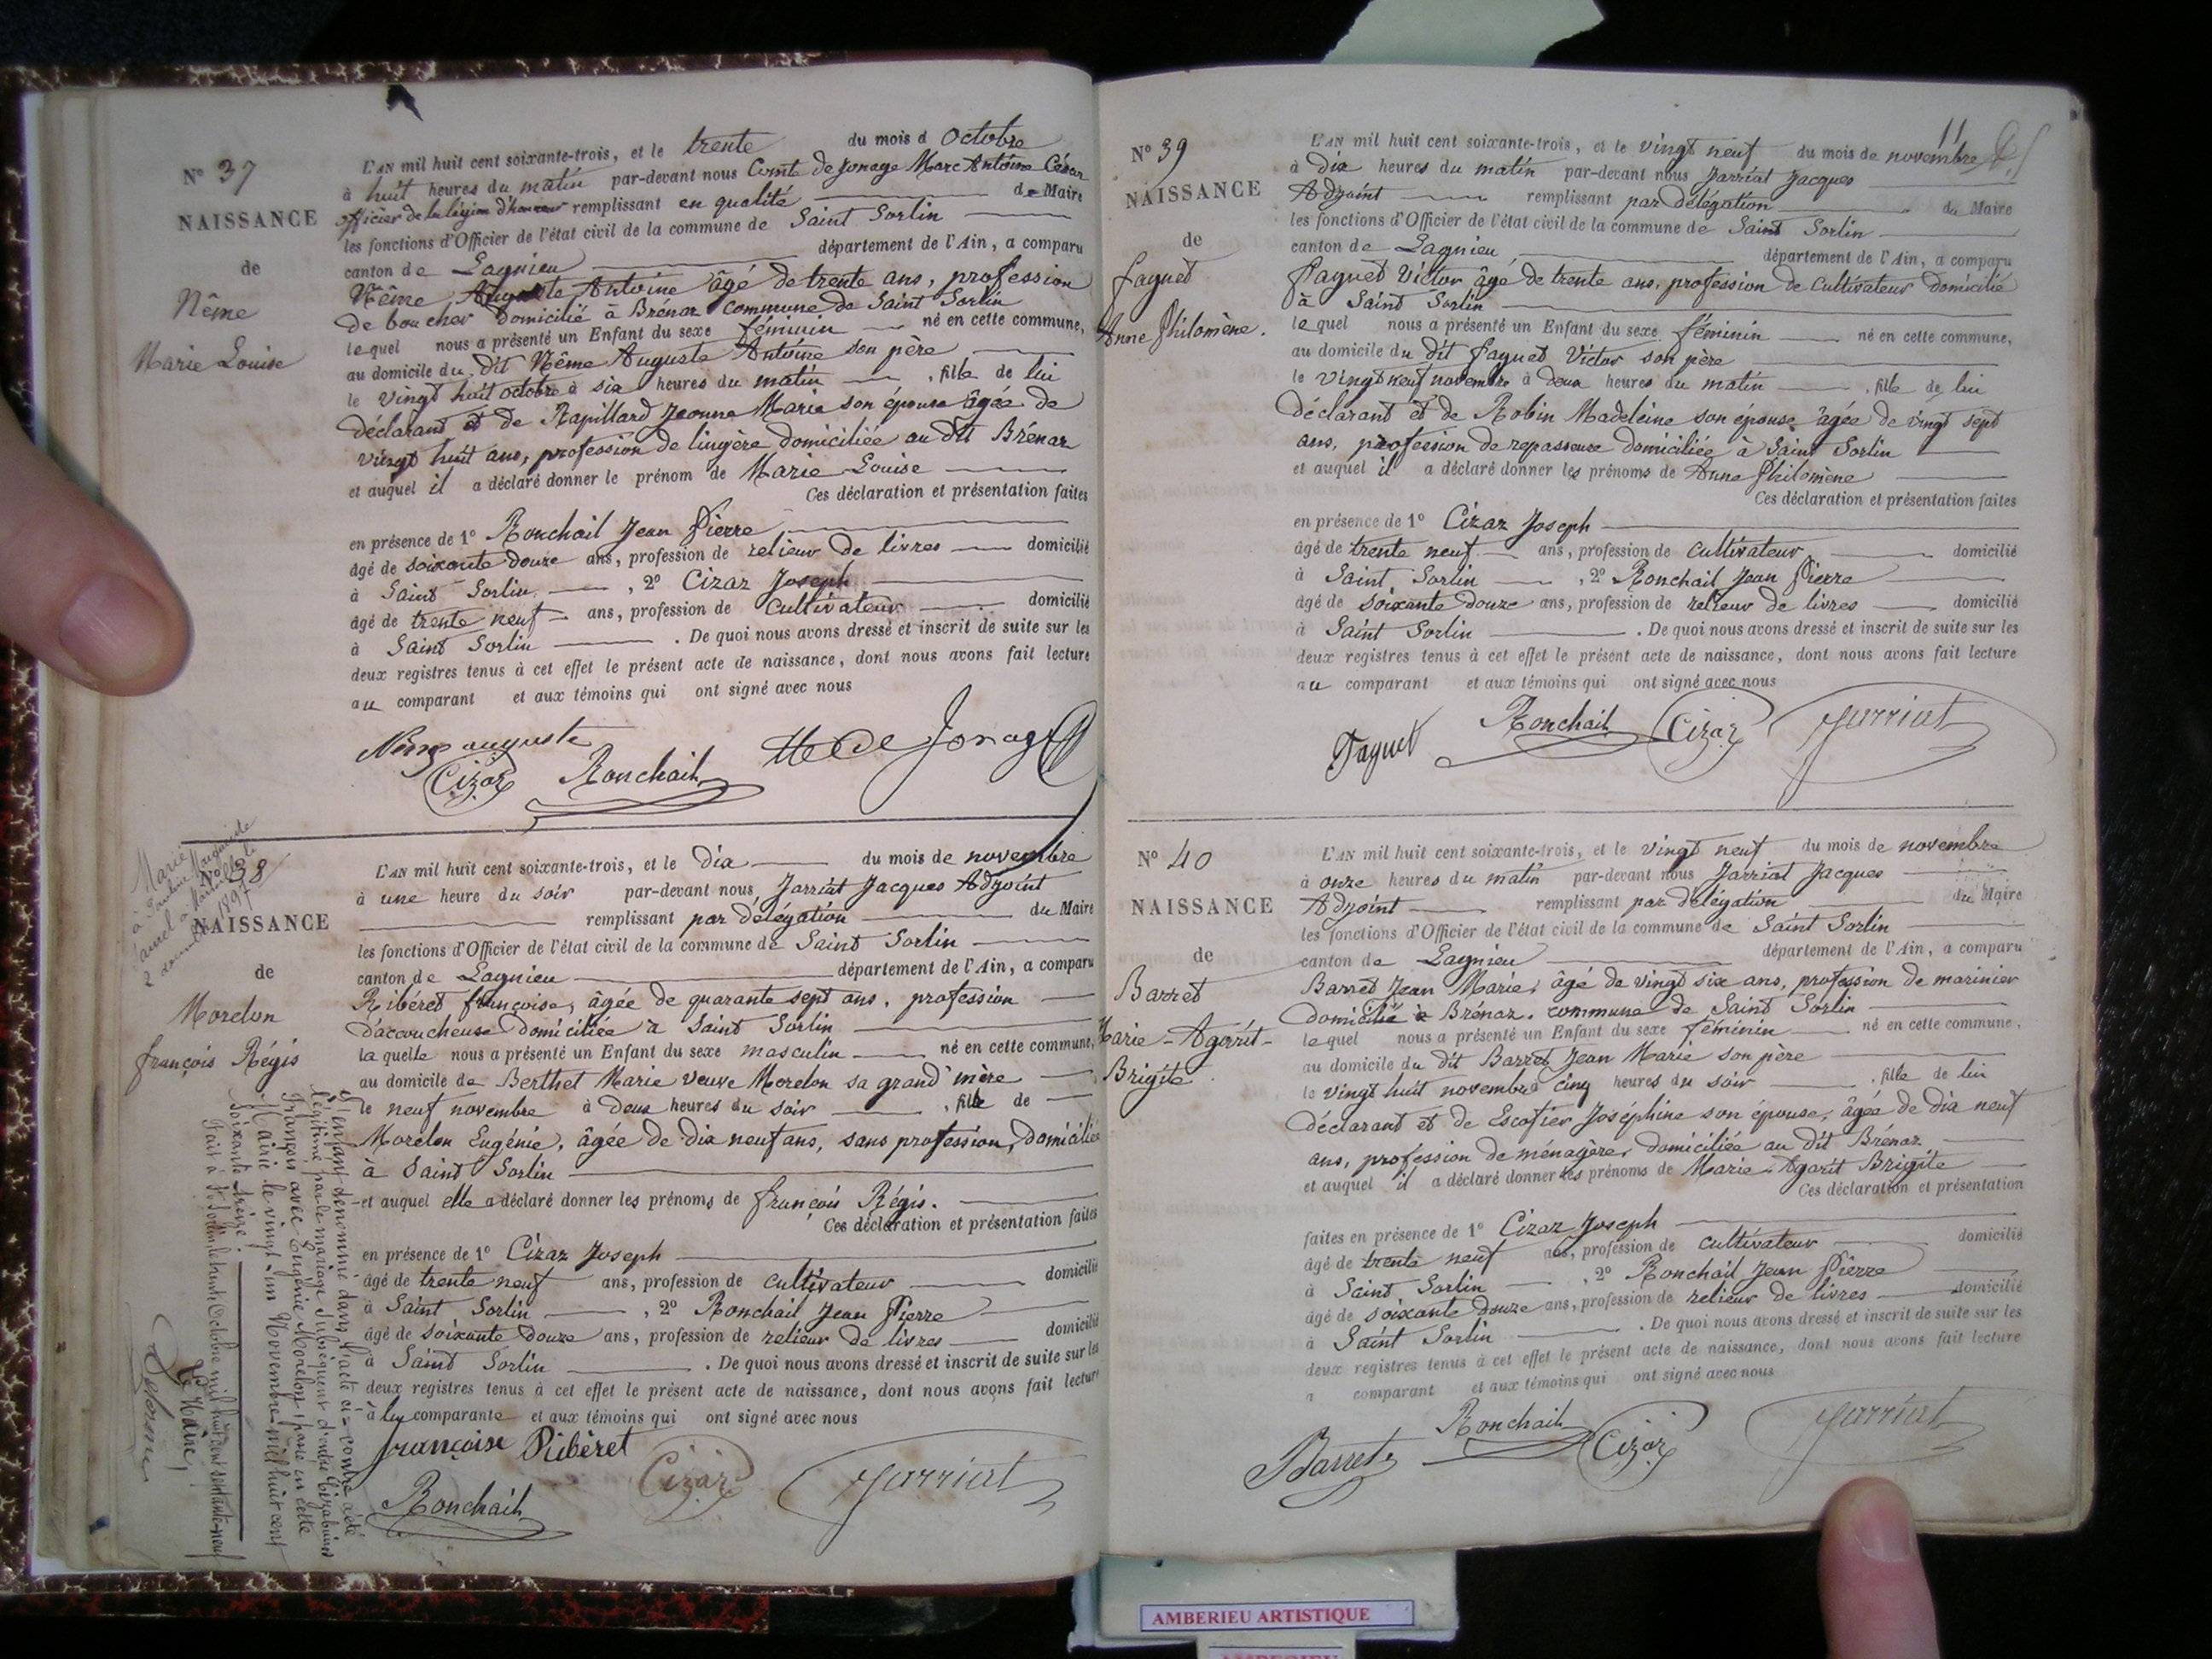 N° 37
NAISSANCE
de
Nême
Marie Louise
L'AN mil huit cent soixante-trois, et le trente du mois d Octobre
à huit heures du matin par-devant nous Comte de Jonage Marc Antoine César
officier de la légion d'honneur remplissant en qualité de Maire
les fonctions d'Officier de l'état civil de la commune de Saint Sorlin
canton de Lagnieu département de l'Ain, a comparu
Nême, Auguste Antoine âgé de trente ans, profession
de boucher domicilié à Brénaz commune de Saint Sorlin
lequel nous a présenté un Enfant du sexe féminin né en cette commune,
au domicile du dit Nême Auguste Antoine son père
le vingt huit octobre à six heures du matin , fille de lui
déclarant et de Rapillard Jeanne Marie son épouse âgée de
vingt huit ans, profession de lingère domiciliée au dit Brénaz
et auquel il a déclaré donner le prénom de Marie Louise
Ces déclaration et présentation faites
en présence de 1° Ronchail Jean Pierre
âgé de soixante douze ans, profession de relieur de livres domicilié
à Saint Sorlin , 2° Cizaz Joseph
âgé de trente neuf ans, profession de Cultivateur domicilié
à Saint Sorlin . De quoi nous avons dressé et inscrit de suite sur les
deux registres tenus à cet effet le présent acte de naissance, dont nous avons fait lecture
au comparant et aux témoins qui ont signé avec nous
Nême auguste
Cizaz Ronchail de Jonage
N° 38
NAISSANCE
de
Morelon
françois Régis
L'AN mil huit cent soixante-trois, et le dix du mois de novembre
à une heure du soir par-devant nous Jarriat Jacques Adjoint
remplissant par délégation du Maire
les fonctions d'Officier de l'état civil de la commune de Saint Sorlin
canton de Lagnieu département de l'Ain, a comparu
Ribéret françoise, âgée de quarante sept ans, profession
d'accoucheuse domiciliée à Saint Sorlin
laquelle nous a présenté un Enfant du sexe masculin né en cette commune,
au domicile de Berthet Marie veuve Morelon sa grand'mère
le neuf novembre à deux heures du soir , fils de
Morelon Eugénie, âgée de dix neuf ans, sans profession, domiciliée
à Saint Sorlin
et auquel elle a déclaré donner les prénoms de françois Régis.
Ces déclaration et présentation faites
en présence de 1° Cizaz Joseph
âgé de trente neuf ans, profession de cultivateur domicilié
à Saint Sorlin , 2° Ronchail Jean Pierre
âgé de soixante douze ans, profession de relieur de livres domicilié
à Saint Sorlin . De quoi nous avons dressé et inscrit de suite sur les
deux registres tenus à cet effet le présent acte de naissance, dont nous avons fait lecture
à la comparante et aux témoins qui ont signé avec nous
françoise Ribéret
Ronchail Cizaz Jarriat
L'enfant dénommé dans l'acte ci-contre a été
légitimé par le mariage subséquent d'entre
François avec Eugénie Morelon, passé en cette
Mairie le vingt-un Novembre mil huit cent
soixante treize.
Fait à St Sorlin le trente Octobre mil huit cent septante-neuf
Le Maire,
N° 39
NAISSANCE
de
faguet
Anne Philomène.
11
L'AN mil huit cent soixante-trois, et le vingt neuf du mois de novembre
à dix heures du matin par-devant nous Jarriat Jacques
Adjoint remplissant par délégation du Maire
les fonctions d'Officier de l'état civil de la commune de Saint Sorlin
canton de Lagnieu, département de l'Ain, a comparu
faguet Victor âgé de trente ans, profession de cultivateur domicilié
à Saint Sorlin
lequel nous a présenté un Enfant du sexe féminin né en cette commune,
au domicile du dit faguet Victor son père
le vingt neuf novembre à deux heures du matin , fille de lui
déclarant et de Robin Madeleine son épouse âgée de vingt sept
ans, profession de repasseuse domiciliée à Saint Sorlin
et auquel il a déclaré donner les prénoms de Anne Philomène
Ces déclaration et présentation faites
en présence de 1° Cizaz Joseph
âgé de trente neuf ans, profession de cultivateur domicilié
à Saint Sorlin , 2° Ronchail Jean Pierre
âgé de soixante douze ans, profession de relieur de livres domicilié
à Saint Sorlin . De quoi nous avons dressé et inscrit de suite sur les
deux registres tenus à cet effet le présent acte de naissance, dont nous avons fait lecture
au comparant et aux témoins qui ont signé avec nous
Faguet Ronchail Cizaz Jarriat
N° 40
NAISSANCE
de
Barret
Marie-Agarit-
Brigite
L'AN mil huit cent soixante-trois, et le vingt neuf du mois de novembre
à onze heures du matin par-devant nous Jarriat Jacques
Adjoint remplissant par délégation du Maire
les fonctions d'Officier de l'état civil de la commune de Saint Sorlin
canton de Lagnieu département de l'Ain, a comparu
Barret Jean Marie, âgé de vingt six ans, profession de marinier
domicilié à Brénaz, commune de Saint Sorlin
lequel nous a présenté un Enfant du sexe féminin né en cette commune,
au domicile du dit Barret Jean Marie son père
le vingt huit novembre à cinq heures du soir , fille de lui
déclarant et de Escofier Joséphine son épouse, âgée de dix neuf
ans, profession de ménagère, domiciliée au dit Brénaz
et auquel il a déclaré donner les prénoms de Marie-Agarit Brigite
Ces déclaration et présentation
faites en présence de 1° Cizaz Joseph
âgé de trente neuf ans, profession de cultivateur domicilié
à Saint Sorlin , 2° Ronchail Jean Pierre
âgé de soixante douze ans, profession de relieur de livres domicilié
à Saint Sorlin . De quoi nous avons dressé et inscrit de suite sur les
deux registres tenus à cet effet le présent acte de naissance, dont nous avons fait lecture
a comparant et aux témoins qui ont signé avec nous
Barret Ronchail Cizaz Jarriat
AMBERIEU ARTISTIQUE
AMBERIEU